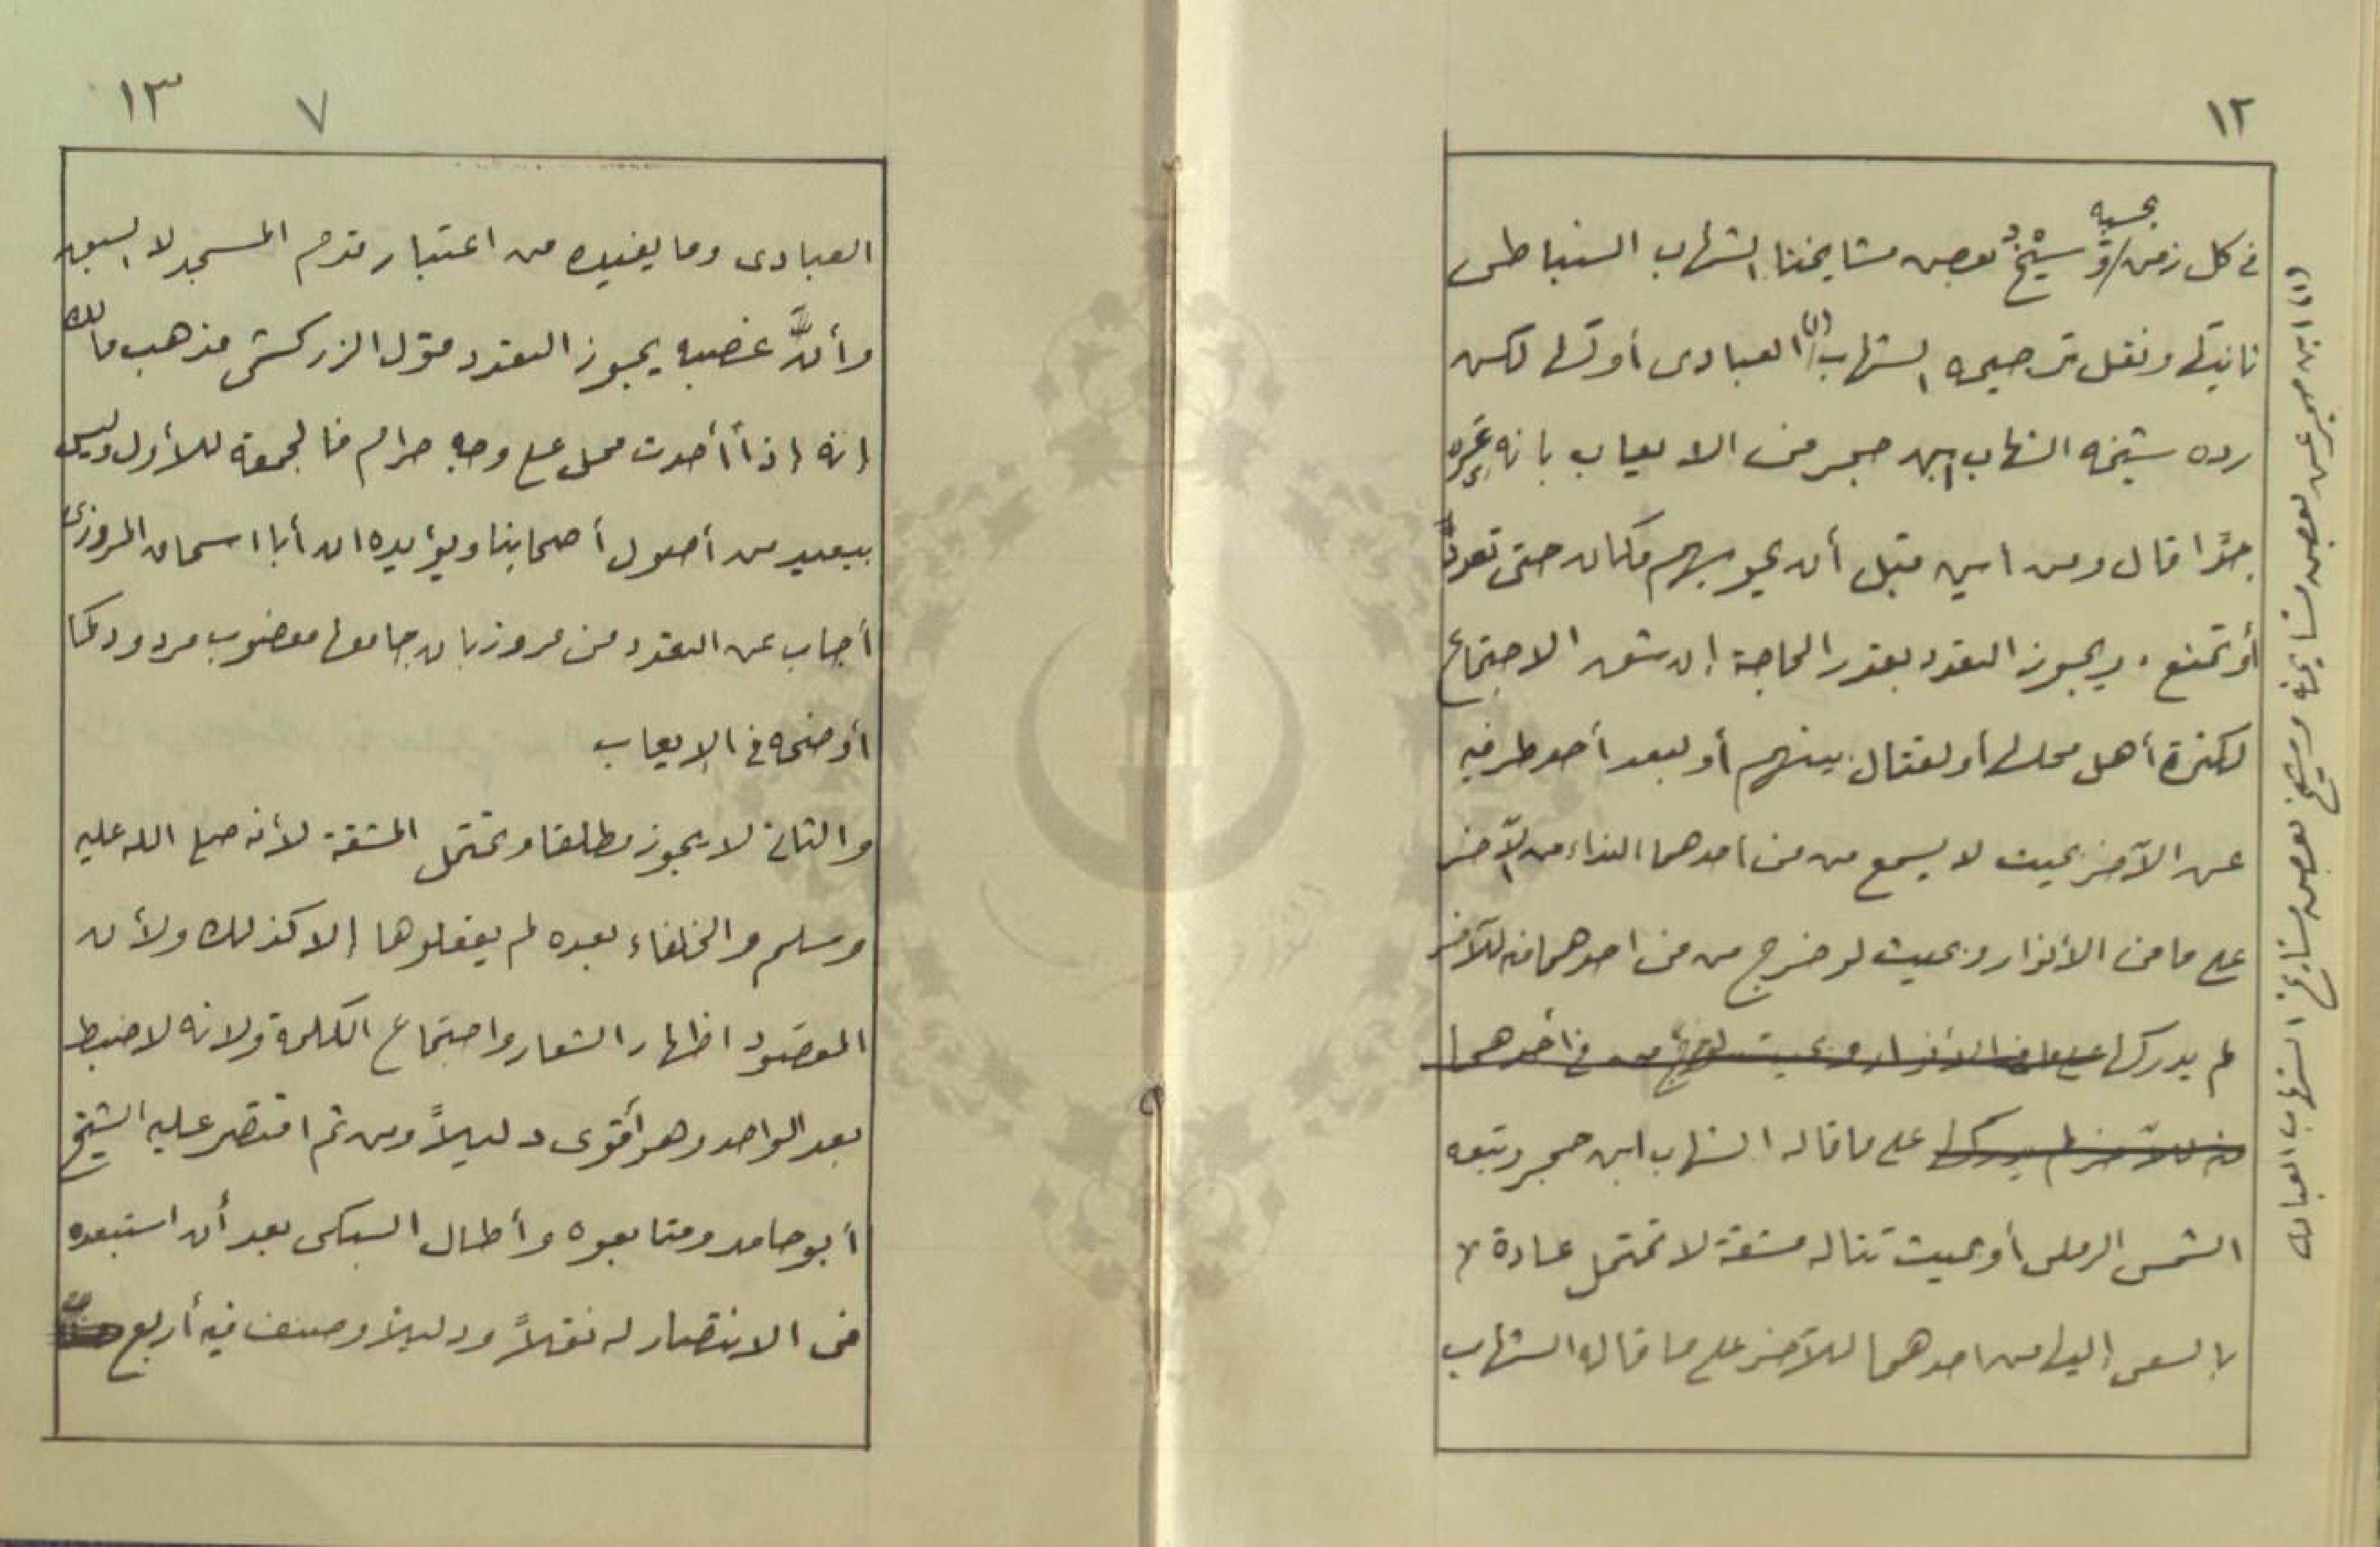 ١٢
في كل زمن بحسبه وشيخ بعض مشايخنا الشهاب السنباطى
ثانيها ونقل ترجيحه الشهاب (١) العبادى أولها لكن
رده شيخه الشهاب ابن حجر فى الايعاب بانه
جدًا قال ومن اين قبل أن يحويهم مكان حتى تعدد
أو تمنع . ويجوز التعدد بقدر الحاجة إن شق الاجتماع
لكثرة أهل محلها أو لقتال بينهم أو لبعد أحد طرفيه
عن الآخر بحيث لا يسمع من فى احدهما النداء من الآخر
على ما فى الأنوار وبحيث لو خرج من فى احدهما منه للآخر
لم يدركها على ما فى الأنوار وبحيث لو خرج من فى أحدهما
منه للآخر لم يدركها على ما قاله الشهاب ابن حجر وتبعه
الشمس الرملى أو بحيث تناله مشقة لا تحتمل عادة
بالسعى إليها من احدهما للآخر على ما قاله الشهاب
(١) ابن حجر عن بعض مشايخه وشيخ بعض مشايخنا الشهاب العبادى
١٣
٧
العبادى وما يفيده من اعتبار تقدم المسجد لا السبق
وأن غصبه يجوز التعدد قول الزركشى مذهب مالك
إنه إذا أحدث محل على وجه حرام فالجمعة للأول وليس
ببعيد من أصول أصحابنا ويؤيده ان أبا اسحاق المروزى
أجاب عن التعدد فى مرو بان جامعها مغصوب مردود كما
أوضحه في الإيعاب
والثانى لا يجوز مطلقا وتحتمل المشقة لأنه صلى الله عليه
وسلم والخلفاء بعده لم يفعلوها إلا كذلك ولأن
المقصود اظهار الشعار واجتماع الكلمة ولانه لا ضبط
بعد الواحد وهو أقوى دليلاً ومن ثم اقتصر عليه الشيخ
أبو حامد ومتابعوه وأطال السبكى بعد أن استبعده
فى الانتصار له نقلاً ودليلا وصنف فيه أربع